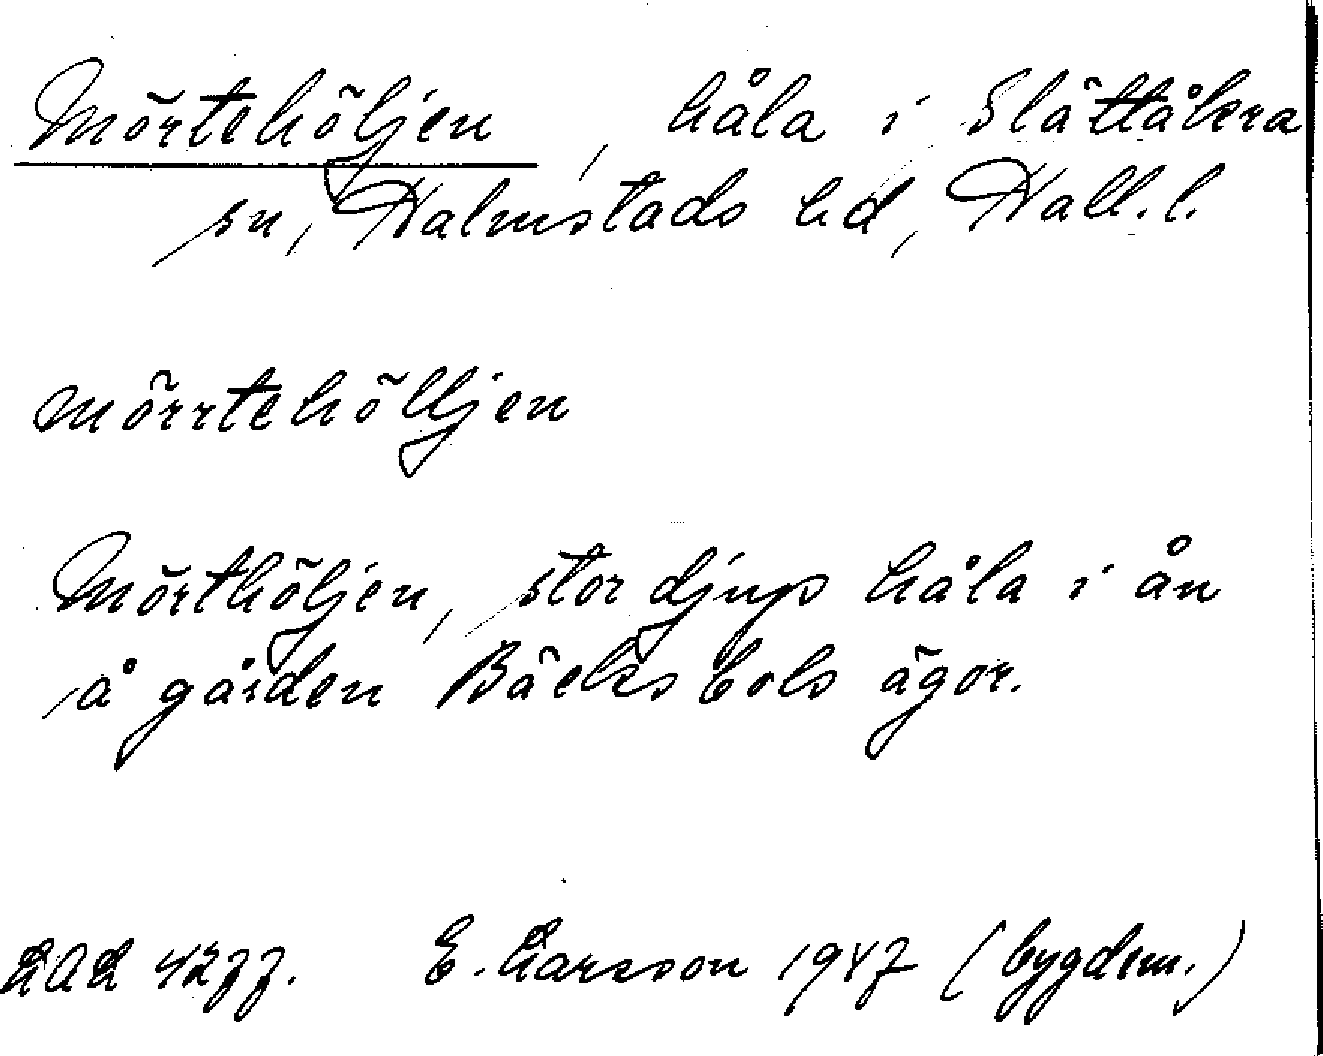 Mörtehöljen, håla i Slättåkra
sn, Halmstads hd, Hall.l.
mörrtehölljen
Mörthöljen, stor djup håla i ån
å gården Bäcksbols ägor.
LAL 4277. E. Larsson 1947 (bygdem.)